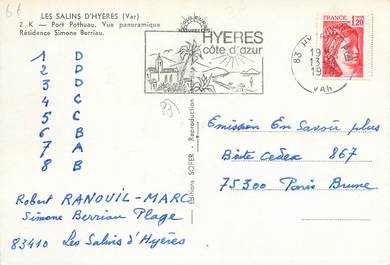 6€
LES SALINS D'HYÈRES (Var)
2 K — Port Pothuau. Vue panoramique
Résidence Simone Berriau.
HYERES
côte d'azur
FRANCE
1,20
83
VAR
1 D
2 D
3 D
4 C
5 C
6 B
7 A
8 B
83
Robert RANOUIL-MARC
Simone Berriau Plage
83410 Les Salins d'Hyères
Editions SOFER - Reproduction
Emission En Savoir plus
Boîte Cedex 867
75300 Paris Brune